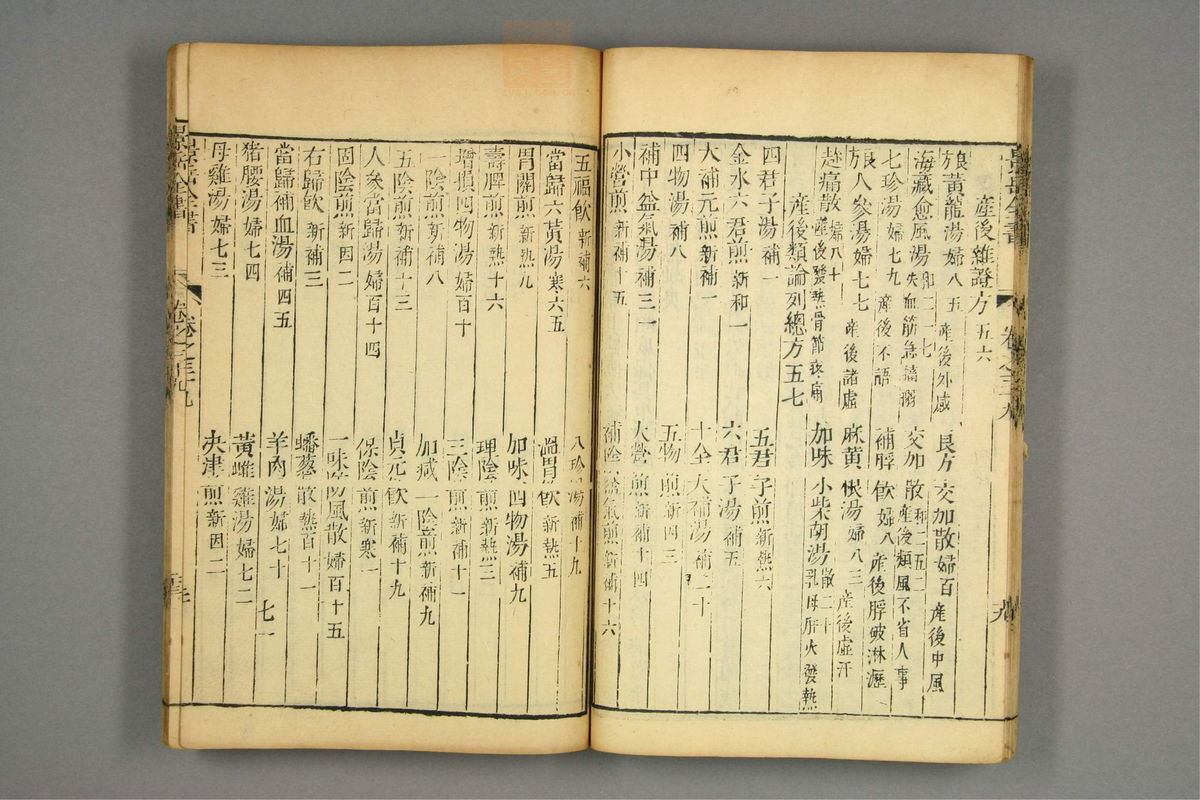 景岳全書 卷之三九
產後雜證方 五六
良方黃龍湯 婦八五 產後外感 良方交加散 婦百 產後中風
海藏愈風湯 和三一七 失血筋急搐搦 交加散 和二五二 產後類風不省人事
七珍湯 婦七九 產後不語 補脬飲 婦八 產後脬破淋瀝
良方人參湯 婦七七 產後諸虛 麻黃根湯 婦八三 產後虛汗
趁痛散 婦八十 產後發熱骨節疼痛 加味小柴胡湯 散二十 乳母肝火發熱
產後類論列總方 五七
四君子湯 補一 五君子煎 新熱六
金水六君煎 新和一 六君子湯 補五
大補元煎 新補一 十全大補湯 補二十
四物湯 補八 五物煎 新四三
補中益氣湯 補三一 大營煎 新補十四
小營煎 新補十五 補陰益氣煎 新補十六
五福飲 新補六 八珍湯 補十九
當歸六黃湯 寒六五 溫胃飲 新熱五
胃關煎 新熱九 加味四物湯 補九
壽脾煎 新熱十六 理陰煎 新熱三
增損四物湯 婦百十 三陰煎 新補十一
一陰煎 新補八 加減一陰煎 新補九
五陰煎 新補十三 貞元飲 新補十九
人參當歸湯 婦百十四 保陰煎 新寒一
固陰煎 新因二 一味防風散 婦百十五
右歸飲 新補三 蟠葱散 熱百十一
當歸補血湯 補四五 羊肉湯 婦七十 七一
猪腰湯 婦七四 黃雌雞湯 婦七二
母雞湯 婦七三 決津煎 新因二
景岳全書 卷之三十九